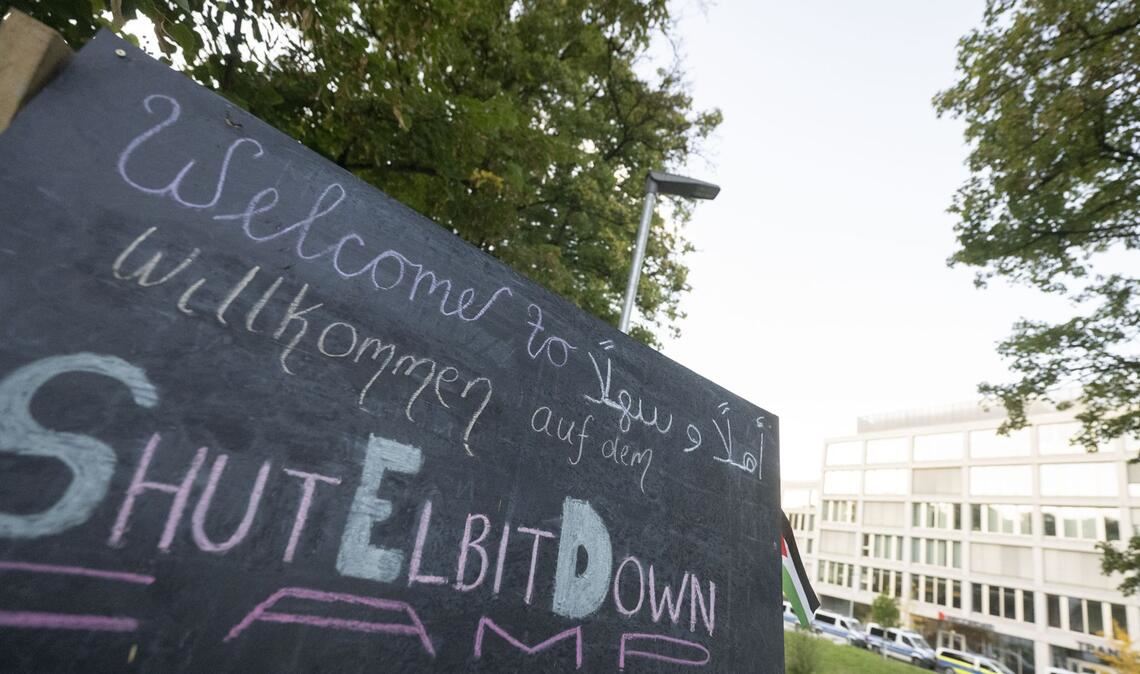 Welcome to
أهلاً و سهلاً
Willkommen auf dem
SHUT ELBIT DOWN
CAMP
TRAN